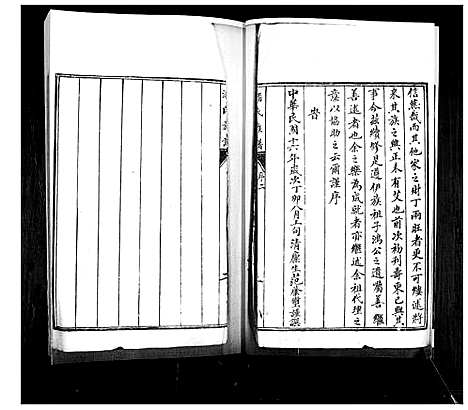 信然哉而其他家之財丁兩旺者更不可縷述將
來其族之興正未有艾也前次初刊壽東已與其
事今茲續修是道伊族祖子鴻公之遺囑善繼
善述者也余之樂為成就者亦繼述余祖代理之
意以協助之云爾謹序
旹
中華民國十六年歲次丁卯八月上旬清廩生范 謹譔
氏族譜 序二